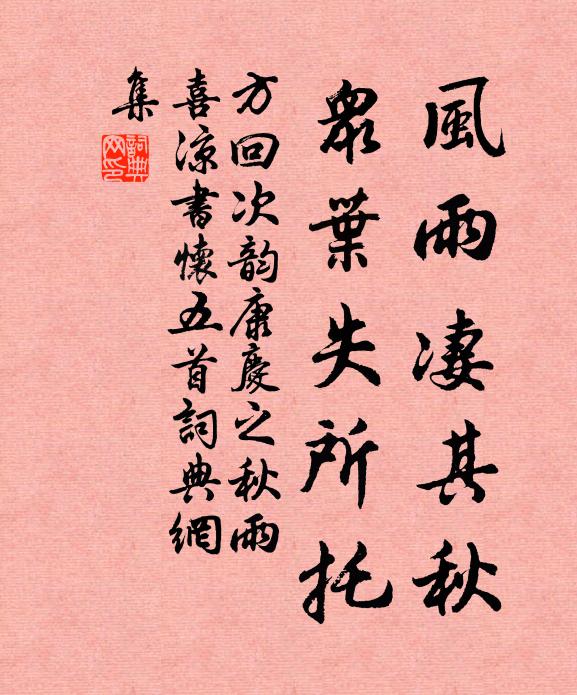 風雨凄其秋
眾葉失所托
方回次韵康慶之秋雨
喜凉書懷五首詞典網
集
詞典網印